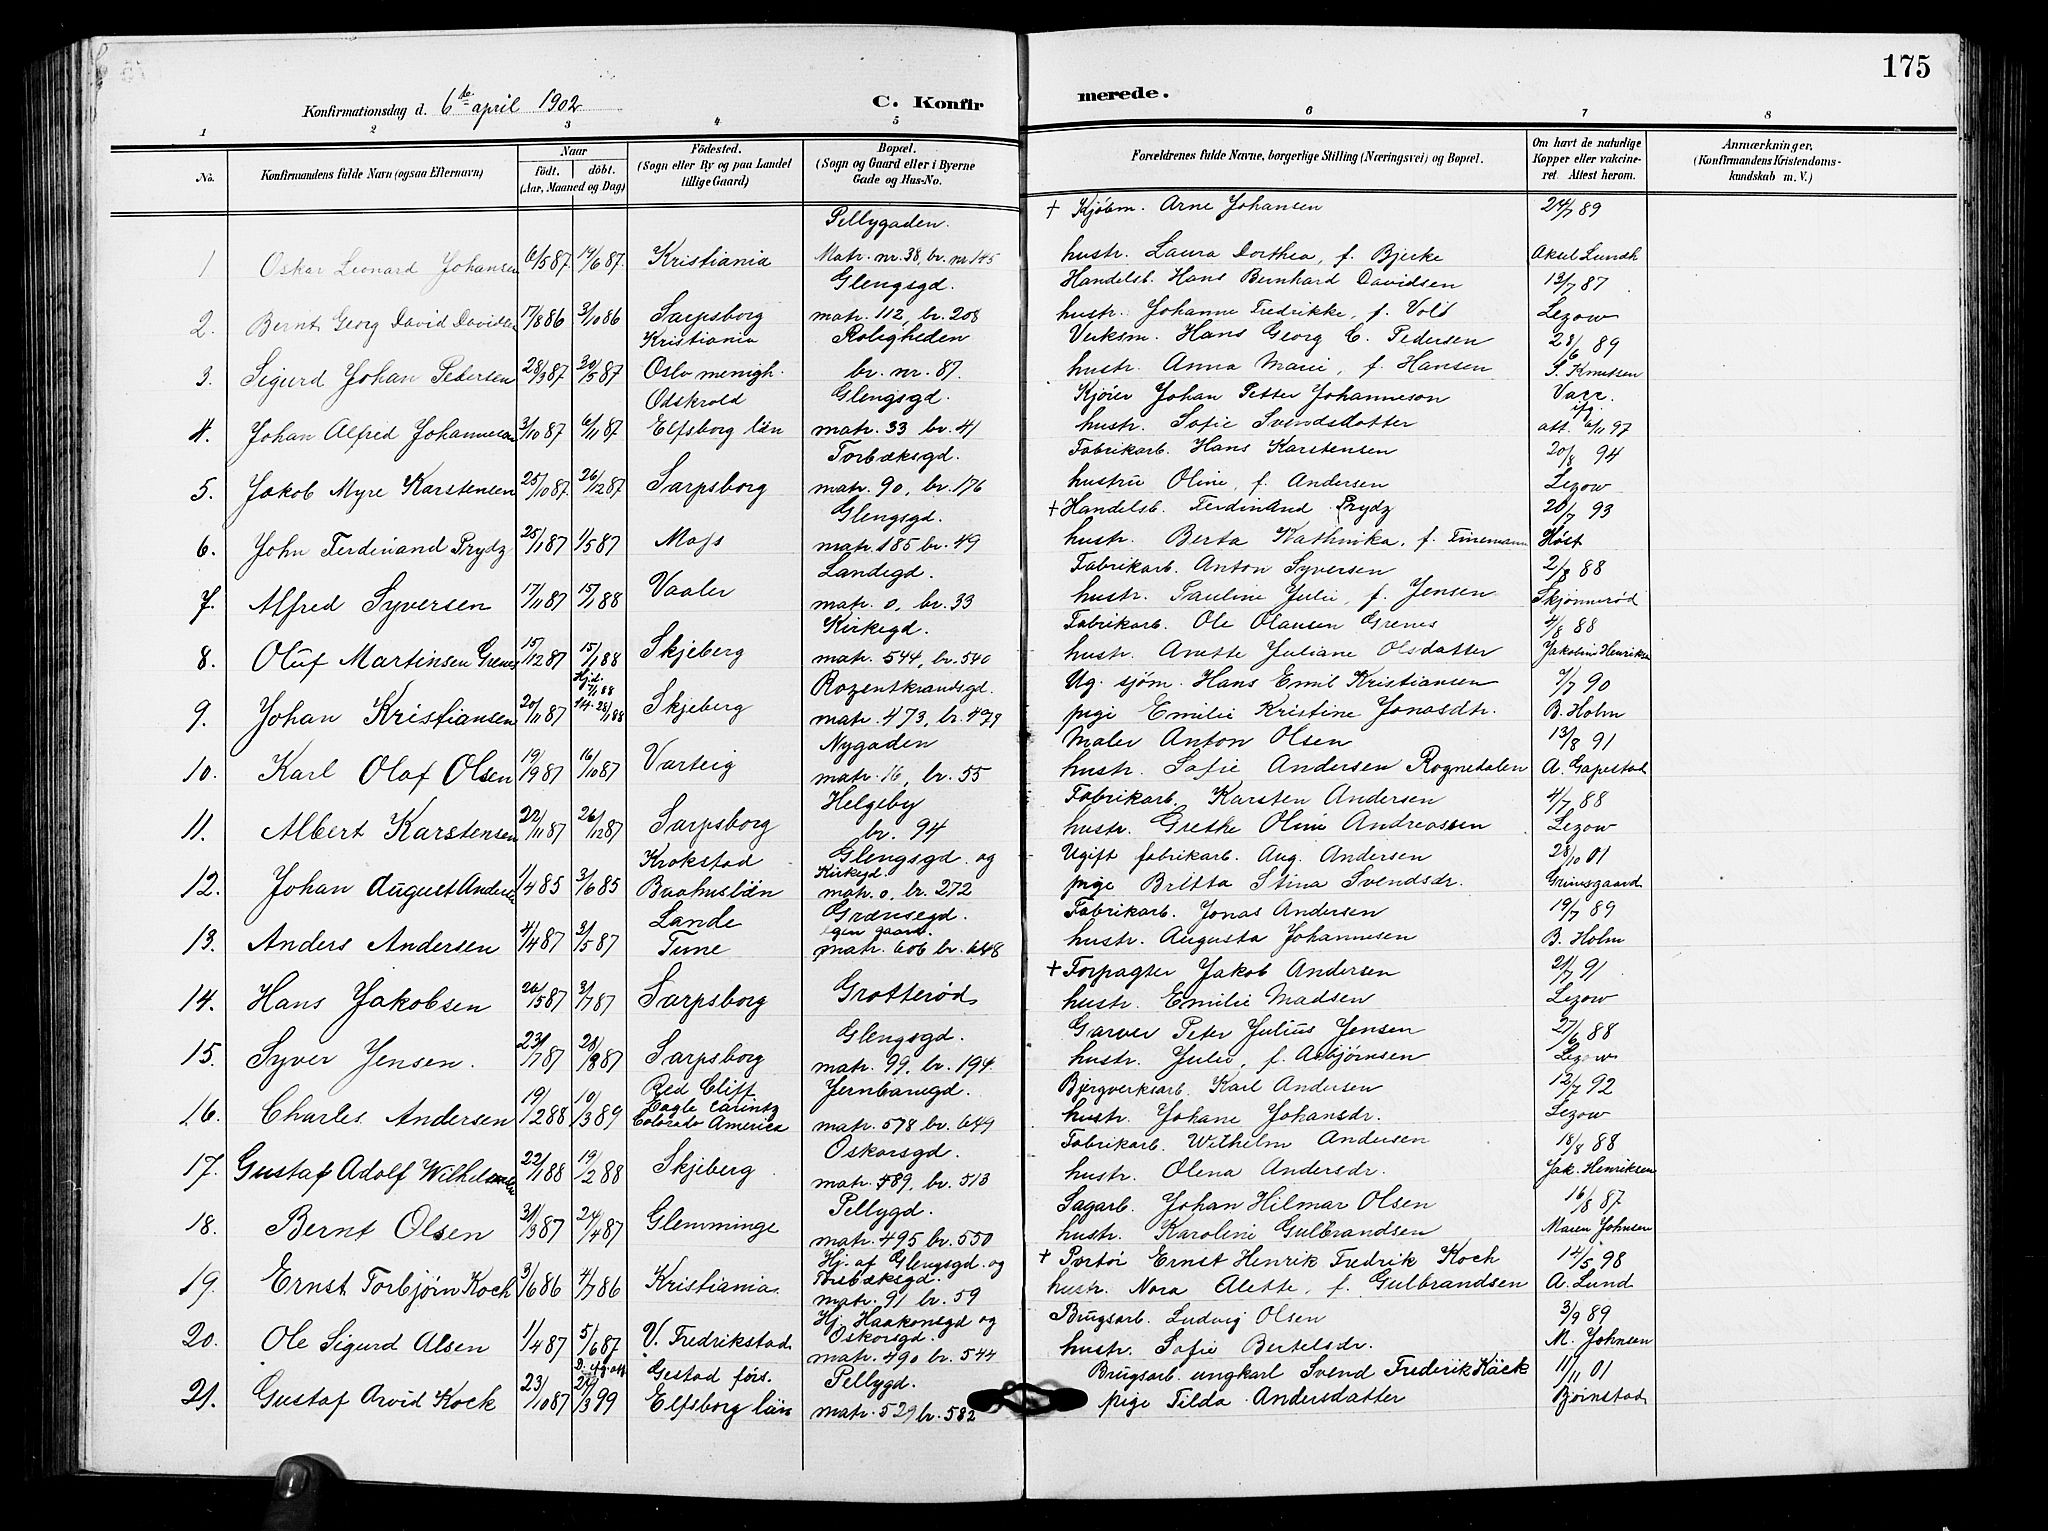 175
Konfirmationsdag d. 6te april 1902
C. Konfir
merede.
1 2 3 4 5 6 7 8
No. Konfirmandens fulde Navn (ogsaa Efternavn)
Naar
födt. döbt.
(Aar, Maaned og Dag)
Födested.
(Sogn eller By og paa Landet
tillige Gaard)
Bopæl.
(Sogn og Gaard eller i Byerne
Gade og Hus-No.
Forældrenes fulde Navne, borgerlige Stilling (Næringsvei) og Bopæl.
Om havt de naturlige
Kopper eller vakcine-
ret. Attest herom.
Anmærkninger.
(Konfirmandens Kristendoms-
kundskab m. V.)
Pellygaden. + Kjøbm. Arne Johansen 24/7 89
1 Oskar Leonard Johansen 6/5 87 14/6 87. Kristiania Matr. nr. 38, br. nr 145 hustr. Laura Dorthea, f. Bjerke Aksel Lundh
Glengsgd. Handelsb. Hans Bernhard Davidsen 13/7 87
2. Bernt Georg David Davidsen 17/8 86 3/10 86 Sarpsborg matr. 112, br. 208 hustr. Johanne Fredrikke, f. Vold Lezow
Kristiania Roligheden Verksm. Hans Georg C. Pedersen 28/6 89
3. Sigurd Johan Pedersen 28/3 87 30/5 87 Oslo menigh. br. nr. 87. hustr. Anna Marie, f. Hansen S. Knutsen
Ödskvold Glengsgd. Kjører Johan Petter Johanneson Vacc.
4. Johan Alfred Johanneson 3/10 87 6/11 87 Elfsborg län matr. 33 br. 41 hustr. Sofie Svendsdatter ifg. att. 6/11 97
Torbæksgd. Fabrikarb. Hans Karstensen 20/8 94
5. Jakob Myre Karstensen 25/10 87. 26/12 87 Sarpsborg matr. 90, br. 176 hustru Oline, f. Andersen Lezow
Glengsgd. + Handelsb. Ferdinand Prydz 20/7 93
6. John Ferdinand Prydz 25/1 87 1/5 87 Moss matr. 185 br. 49 hustr. Berta Kathinka, f. Tinemann Høst
Landegd. Fabrikarb. Anton Syversen 2/8 88
7. Alfred Syversen 17/11 87 15/1 88 Vaaler matr. 0, br. 33 hustr. Pauline Julie, f. Jensen Skjønnerød
Kirkegd. Fabrikarb. Ole Olausen Grenes 4/8 88
8. Oluf Martinsen Grenes 15/12 87 15/1 88 Skjeberg matr. 544, br. 540 hustr. Anette Juliane Olsdatter Jakobine Henriksen
Hj.d. 7/1 88 Rozentkrandsgd. Ug. sjøm. Hans Emil Kristiansen 7/7 90
9. Johan Kristiansen 20/11 87 28/1 88 Skjeberg matr. 473, br. 479 pige Emilie Kristine Jonasdtr. B. Holm
Nygaden Maler Anton Olsen 13/8 91
10. Karl Olaf Olsen 19/9 87 16/10 87 Varteig matr. 16, br. 55 hustr. Sofie Andersen Rognedalen A. Gapestad
Helgeby Fabrikarb. Karsten Andersen 4/7 88
11. Albert Karstensen 22/11 87 26/12 87 Sarpsborg br. 94 hustr. Grethe Oline Andreassen Lezow
Krokstad Glengsgd. og Ugift fabrikarb. Aug. Andersen 28/10 01
12. Johan August Andersen 1/4 85 3/6 85 Baahuslän Kirkegd. matr. 0, br. 272 pige Britta Stina Svendsdr. Grimsgaard
Lande Grænsegd. Fabrikarb. Jonas Andersen 19/7 89
13. Anders Andersen 4/4 87 3/5 87 Tune egen gaard. matr. 606 br. 648 hustr. Augusta Johannesen B. Holm
+ Forpagter Jakob Andersen 21/7 91
14. Hans Jakobsen 20/5 87 3/7 87 Sarpsborg Grotterød hustr. Emilie Madsen Lezow
Glengsgd. Garver Peter Julius Jensen 27/6 88
15. Syver Jensen. 23/7 87 28/8 87 Sarpsborg matr. 99, br. 194 hustr. Julie, f. Asbjørnsen Lezow
Red Cliff Jernbanegd. Bjergverksarb. Karl Andersen 12/7 92
16. Charles Andersen 19/12 88 10/3 89 Eagle Carintz Colorado America matr. 578 br. 649 hustr. Johane Johansdr. Lezow
Oskarsgd. Fabrikarb. Wilhelm Andersen 18/8 88
17. Gustaf Adolf Wilhelmsen 22/1 88 19/2 88 Skjeberg matr. 489, br. 513 hustr. Olena Andersdr. Jak. Henriksen
Pellygd. Sagarb. Johan Hilmar Olsen 16/8 87
18. Bernt Olsen 31/3 87 24/4 87 Glemminge matr. 495 br. 550 hustr. Karoline Gulbrandsen Maren Johnsen
Hj. af Glengsgd. og + Portør Ernst Henrik Fredrik Koch 14/5 98
19. Ernst Torbjørn Koch 3/6 86 4/7 86 Kristiania. Torbæksgd. matr. 91 br. 59 hustr. Nora Alette, f. Gulbrandsen A. Lund
Hj. Haakonsgd og Brugsarb. Ludvig Olsen 3/9 89
20. Ole Sigurd Olsen 1/4 87 5/6 87 V. Fredrikstad. Oskarsgd. matr. 490 br. 544 hustr. Sofie Bertelsdr. M. Johnsen
D. ifg. att. Gestad förs. Pellygd. Brugsarb. ungkarl Svend Frederik Käck 11/11 01
21. Gustaf Arvid Kock 23/10 87 24/3 99 Elfsborg län matr. 529 br. 582 pige Tilda Andersdatter Bjørnstad